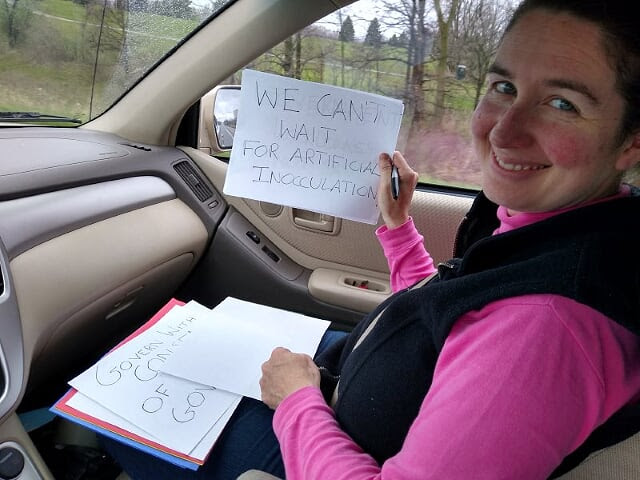 WE CAN'T
WAIT
FOR ARTIFICIAL
INOCCULATION
GOVERN WITH
CONSENT
OF GOV